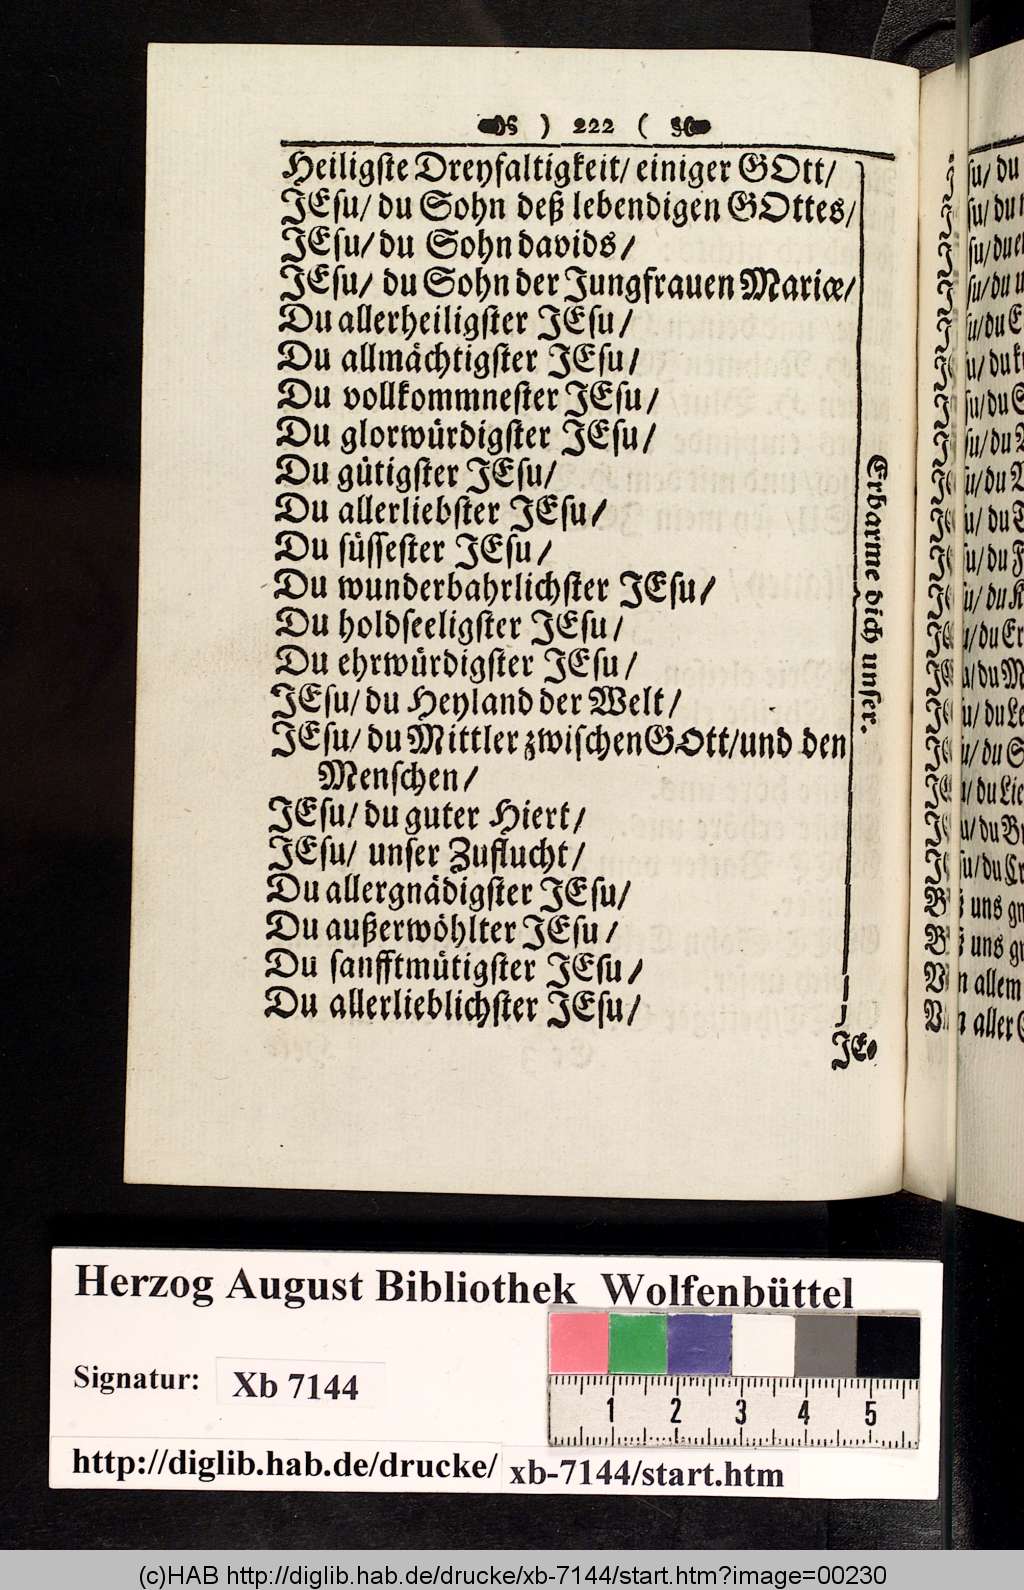 ) 222 (
Heiligſte Dreyfaltigkeit/ einiger GOtt/
JEſu/ du Sohn deß lebendigen GOttes/
JEſu/ du Sohn davids/
JEſu/ du Sohn der Jungfrauen Mariæ/
Du allerheiligſter JEſu/
Du allmächtigſter JEſu/
Du vollkommneſter JEſu/
Du glorwürdigſter JEſu/
Du gütigſter JEſu/
Du allerliebſter JEſu/
Du ſüſſeſter JEſu/
Du wunderbahrlichſter JEſu/
Du holdſeeligſter JEſu/
Du ehrwürdigſter JEſu/
JEſu/ du Heyland der Welt/
JEſu/ du Mittler zwiſchen GOtt/und den
Menſchen/
JEſu/ du guter Hiert/
JEſu/ unſer Zuflucht/
Du allergnädigſter JEſu/
Du außerwöhlter JEſu/
Du ſanfftmütigſter JEſu/
Du allerlieblichſter JEſu/
Erbarme dich unſer.
JE-
Herzog August Bibliothek Wolfenbüttel
Signatur: Xb 7144
1 2 3 4 5
http://diglib.hab.de/drucke/ xb-7144/start.htm
(c)HAB http://diglib.hab.de/drucke/xb-7144/start.htm?image=00230